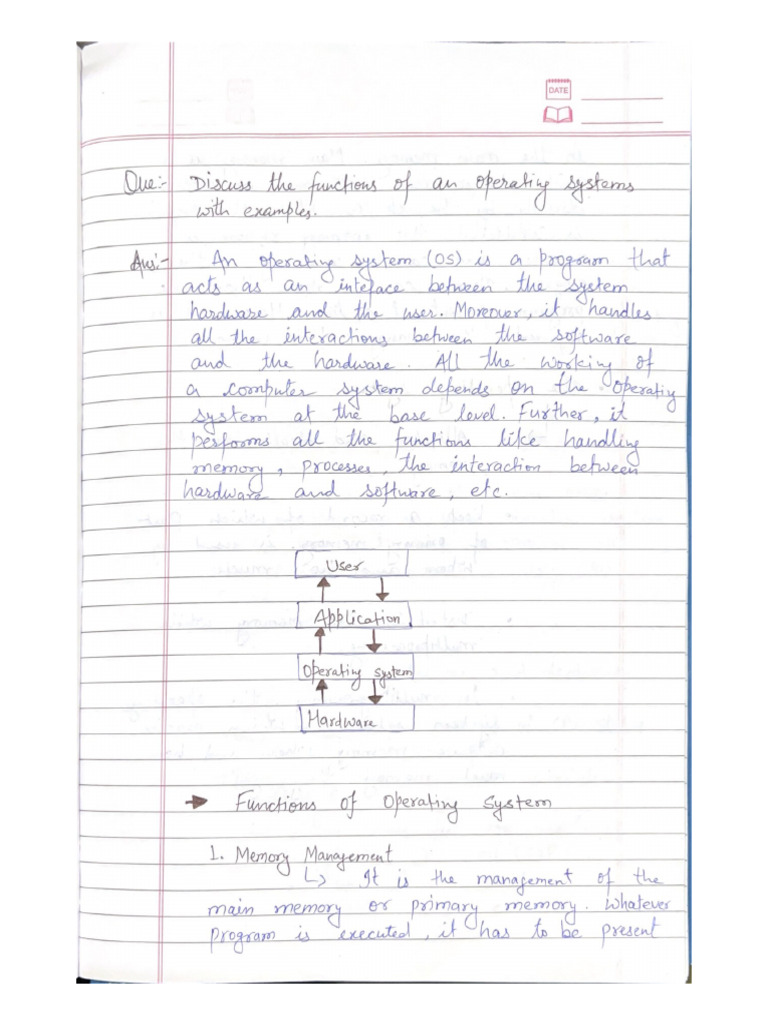 DATE
Que:- Discuss the functions of an operating systems
with examples.
Ans:- An operating system (OS) is a program that
acts as an inteface between the system
hardware and the user. Moreover, it handles
all the interactions between the software
and the hardware. All the working of
a computer system depends on the operatiy
system at the base level. Further, it
performs all the functions like handling
memory, processes, the interaction between
hardware and software, etc.
User
Application
Operating system
Hardware
→ Functions of Operating System
1. Memory Management
↳ It is the management of the
main memory or primary memory. Whatever
program is executed, it has to be present